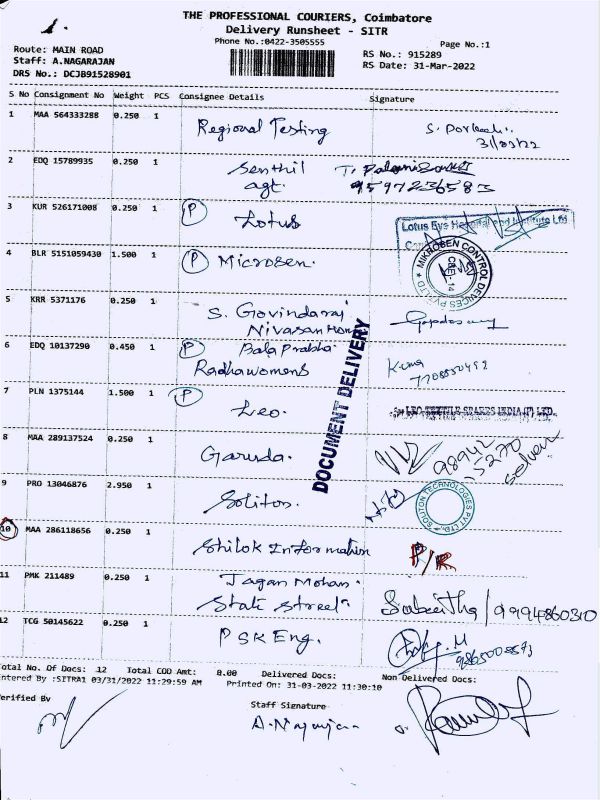 1.
THE PROFESSIONAL COURIERS, Coimbatore
Delivery Runsheet - SITR
Phone No.:0422-3505555
Page No.:1
Route: MAIN ROAD
RS No.: 915289
Staff: A.NAGARAJAN
RS Date: 31-Mar-2022
DRS No.: DCJB91528901
S No Consignment No Weight PCS Consignee Details Signature
1 MAA 564333288 0.250 1 Regional Testing
31/03/22
2 EDQ 15789935 0.250 1 Senthil
agt. 9597236583
3 KUR 526171008 0.250 1 P Lotus Lotus Eye Hospital and Institute Ltd
4 BLR 5151059430 1.500 1 P Microsen. MIKROSEN CONTROL DEVICES PVT LTD
CBE - 14
5 KRR 5371176 0.250 1 S. Govindaraj
Nivasan
6 EDQ 10137290 0.450 1 P Bala Prabha
Radhawomens
DOCUMENT DELIVERY
7 PLN 1375144 1.500 1 P Leo. LEO TEXTILE SPARES INDIA (P) LTD.
8 MAA 289137524 0.250 1 Garuda. 98942
15270
Selvan
9 PRO 13046876 2.950 1 Soliton. SOLITON TECHNOLOGIES PVT LTD.
10 MAA 286118656 0.250 1 Shilok Information P/R
11 PMK 211489 0.250 1 Jagan Mohan.
State Street Sabeetha / 9994860310
12 TCG 50145622 0.250 1 PSK Eng.
Total No. Of Docs: 12 Total COD Amt: 0.00 Delivered Docs: Non Delivered Docs:
Entered By :SITRA1 03/31/2022 11:29:59 AM Printed On: 31-03-2022 11:30:10
Verified By Staff Signature